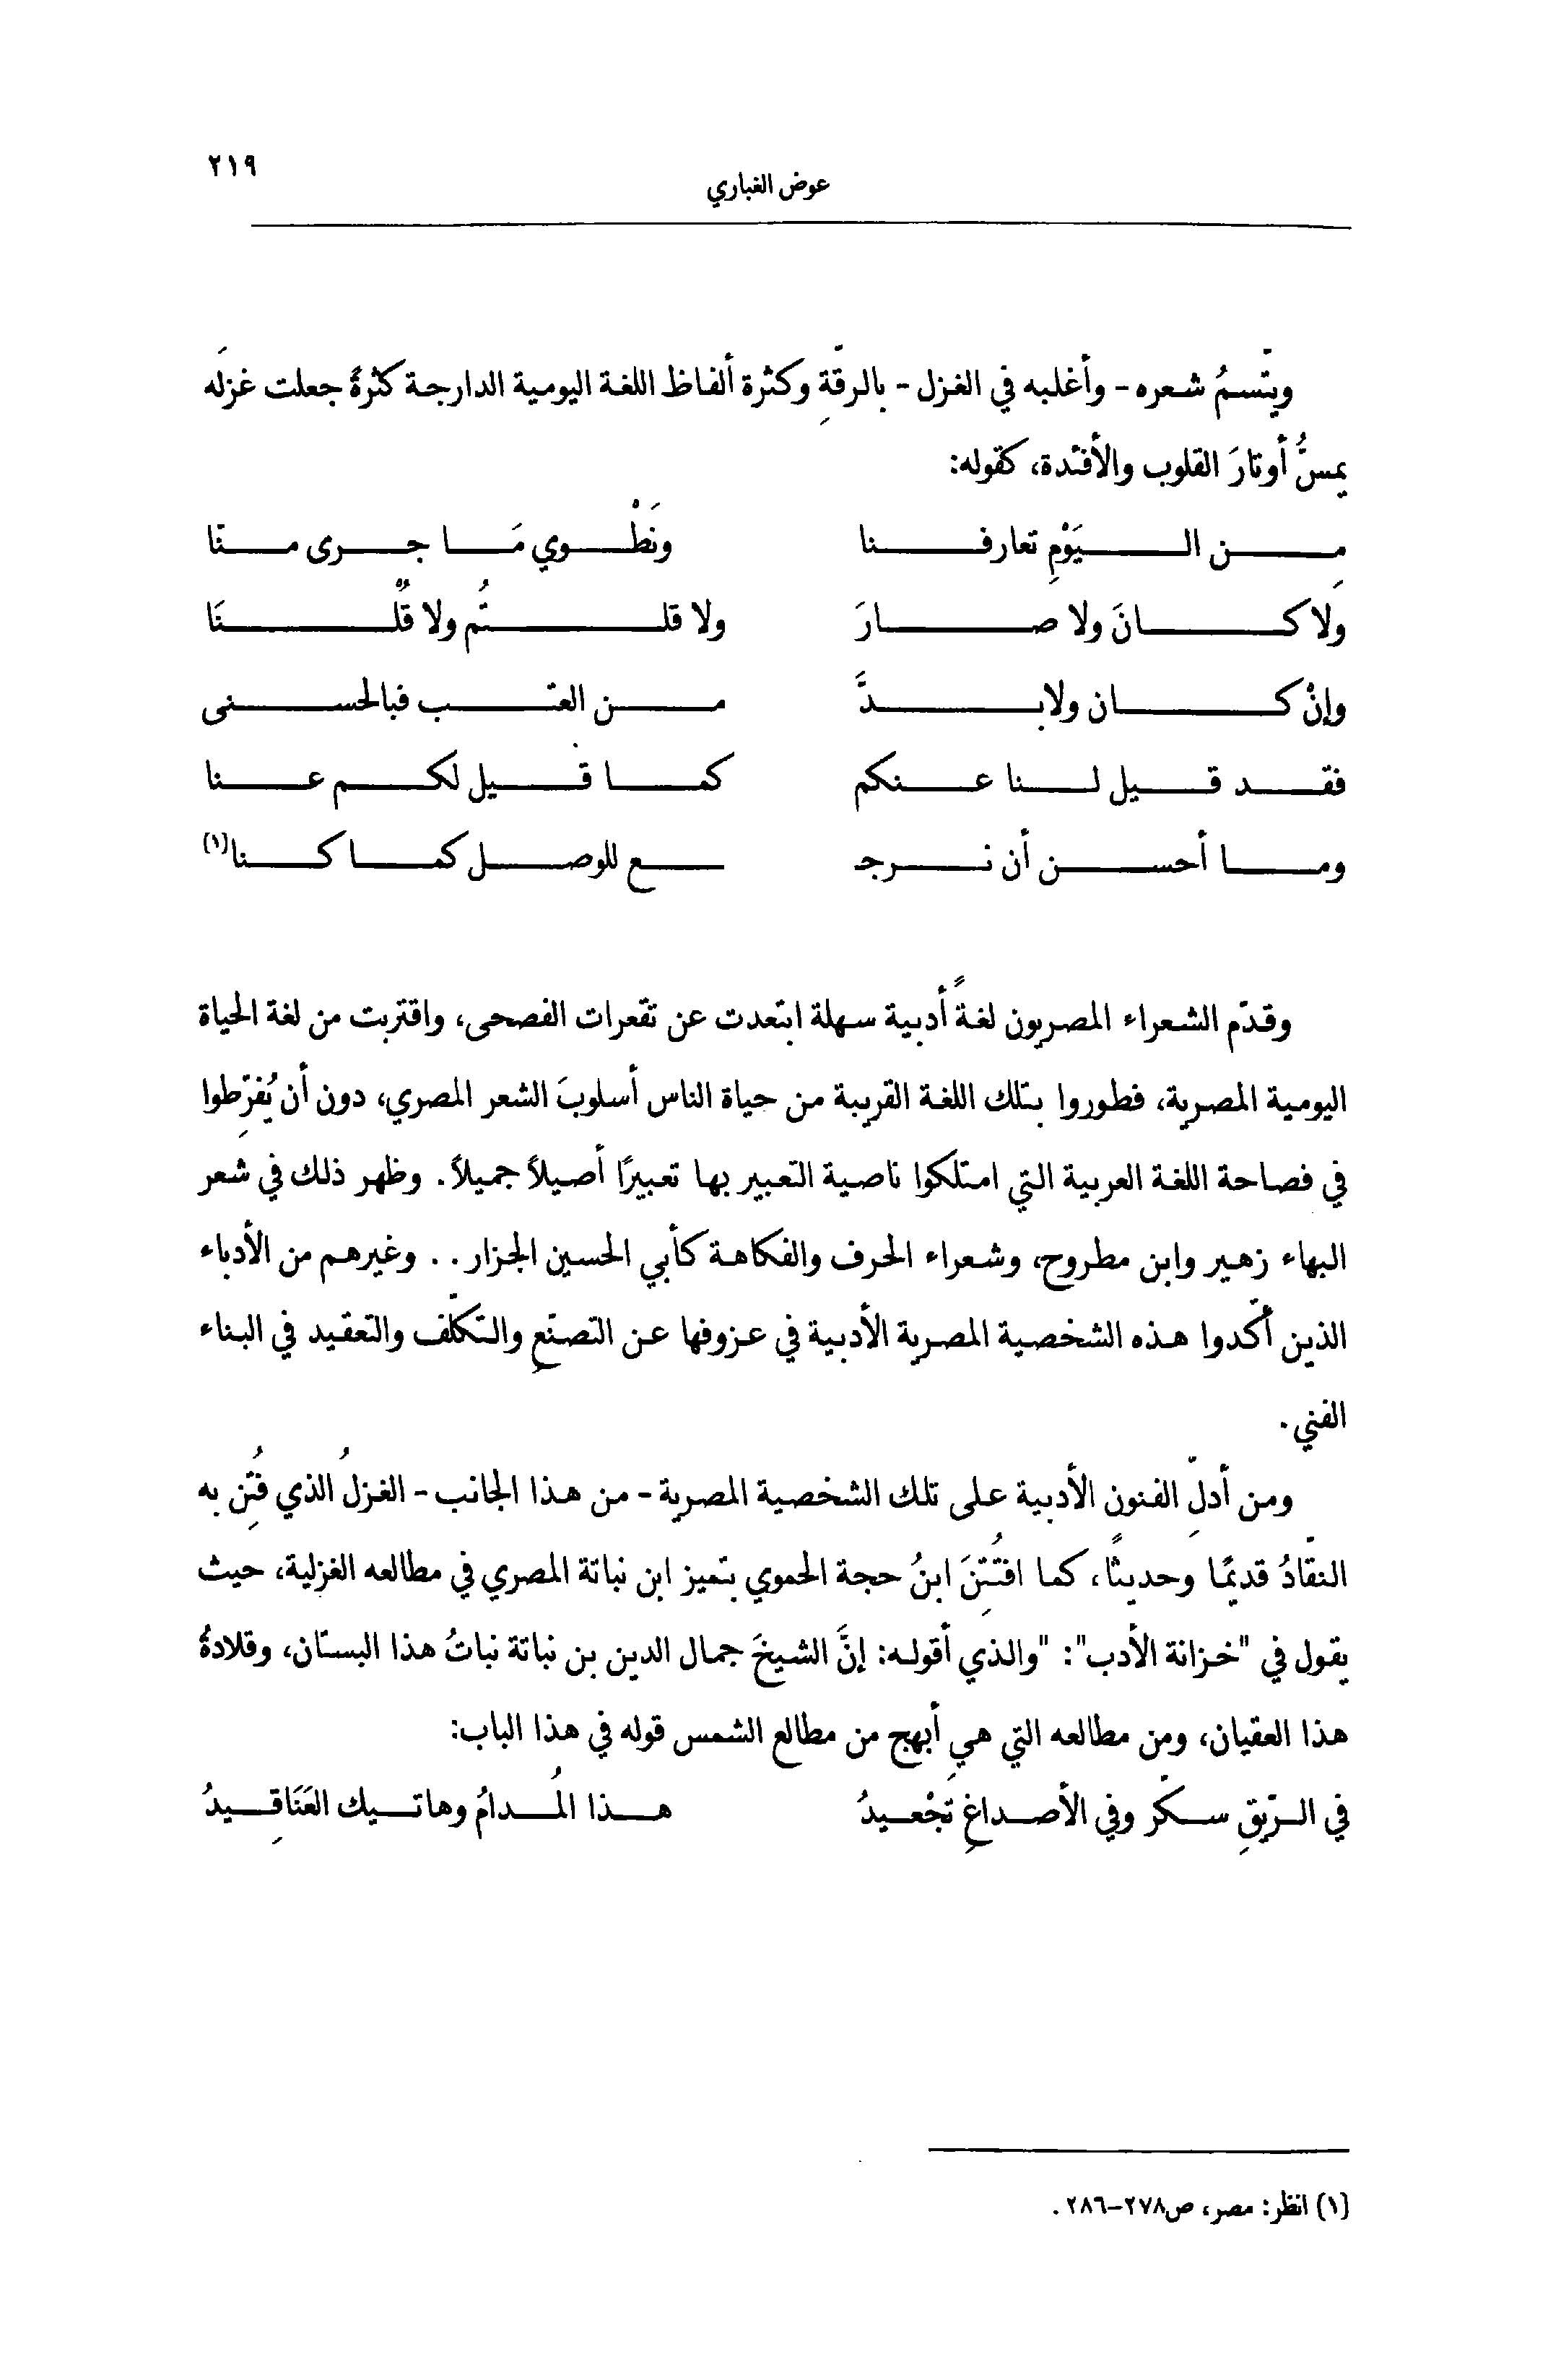 ٢١٩
عوض الغباري
ويتّسمُ شعره - وأغلبه في الغزل - بالرقّةِ وكثرة ألفاظ اللغة اليومية الدارجة كثرةً جعلت غزلَه
يمسُّ أوتارَ القلوب والأفئدة، كقوله:
مِن اليَوْمِ تعارفنا ونَطْوي مَا جرى منّا
ولا كانَ ولا صارَ ولا قلتُم ولا قُلْنَا
وإنْ كان ولابدَّ من العتب فبالحسنى
فقد قيل لنا عنكم كما قيل لكم عنا
وما أحسن أن نرجـ ـع للوصل كما كنا(١)
وقدّم الشعراء المصريون لغةً أدبية سهلة ابتعدت عن تقعرات الفصحى، واقتربت من لغة الحياة
اليومية المصرية، فطوروا بتلك اللغة القريبة من حياة الناس أسلوبَ الشعر المصري، دون أن يُفرّطوا
في فصاحة اللغة العربية التي امتلكوا ناصية التعبير بها تعبيرًا أصيلاً جميلاً. وظهر ذلك في شعر
البهاء زهير وابن مطروح، وشعراء الحرف والفكاهة كأبي الحسين الجزار.. وغيرهم من الأدباء
الذين أكّدوا هذه الشخصية المصرية الأدبية في عزوفها عن التصنّعِ والتكلّف والتعقيد في البناء
الفني.
ومن أدلّ الفنون الأدبية على تلك الشخصية المصرية - من هذا الجانب - الغزلُ الذي فُتِن به
النقّادُ قديمًا وحديثًا، كما افتُتِنَ ابنُ حجة الحموي بتميز ابن نباتة المصري في مطالعه الغزلية، حيث
يقول في "خزانة الأدب": "والذي أقوله: إنَّ الشيخَ جمال الدين بن نباتة نباتُ هذا البستان، وقلادةُ
هذا العقيان، ومن مطالعه التي هي أبهج من مطالع الشمس قوله في هذا الباب:
في الرّيقِ سكّر وفي الأصداغِ تَجْعيدُ هذا المُدامُ وهاتيك العَنَاقِيدُ
(١) انظر: مصر، ص٢٧٨-٢٨٦.